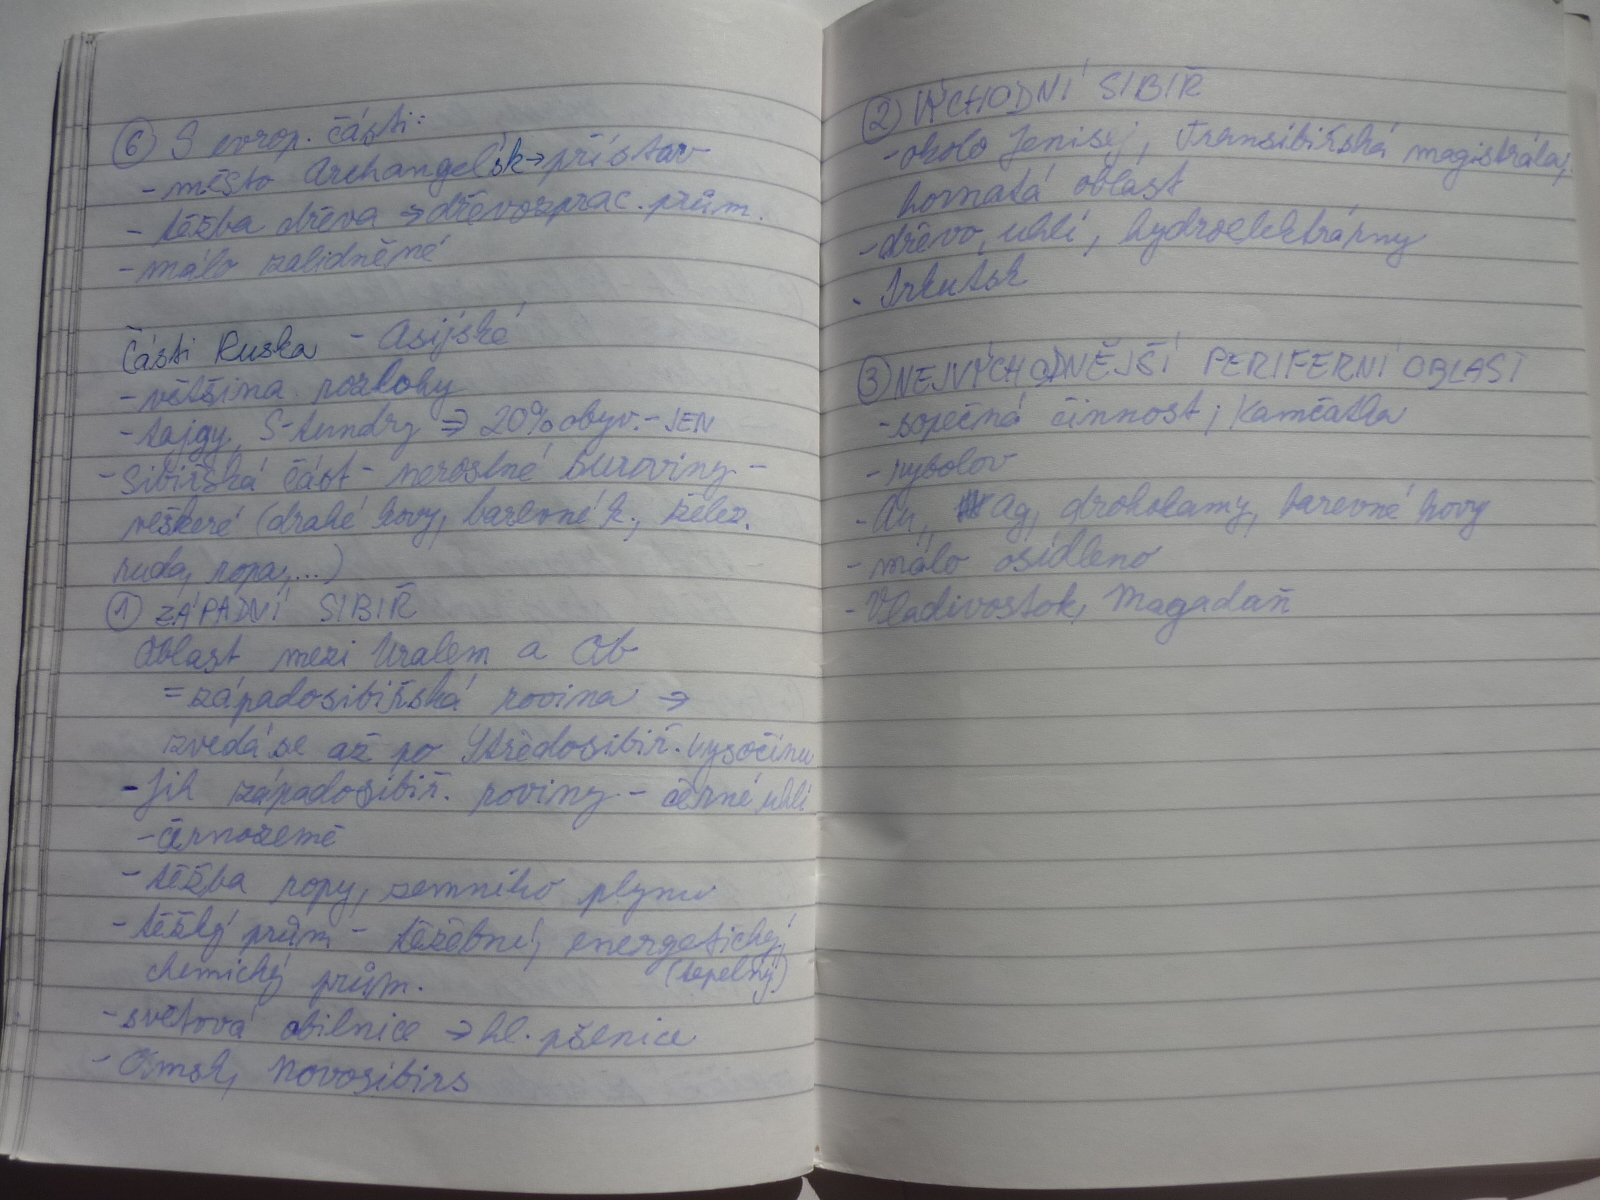 ⑥ S evrop. části:
- město Archangelsk → přístav
- těžba dřeva → dřevozprac. prům.
- málo zalidněné
Části Ruska - Asijské
- většina rozlohy
- tajgy, S-tundry ⇒ 20% obyv. - JEN
- Sibiřská část - nerostné suroviny -
veškeré (drahé kovy, barevné k., želez.
ruda, ropa,...)
① ZÁPADNÍ SIBIŘ
Oblast mezi Uralem a Ob
= západosibiřská rovina →
zvedá se až po Středosibiř. vysočinu
- Jih západosibiř. roviny - černé uhlí
- černozemě
- těžba ropy, zemního plynu
- těžký prům - těžební, energetický,
chemický prům. (tepelný)
- světová obilnice → hl. pšenice
- Osmsk, Novosibirs
② VÝCHODNÍ SIBIŘ
- okolo Jenisej, Transibiřská magistrála,
hornatá oblast
- dřevo, uhlí, hydroelektrárny
- Irkutsk
③ NEJVÝCHODNĚJŠÍ PERIFERNÍ OBLAST
- sopečná činnost; Kamčatka
- rybolov
- Au, Ag, drahokamy, barevné kovy
- málo osídleno
- Vladivostok, Magadaň